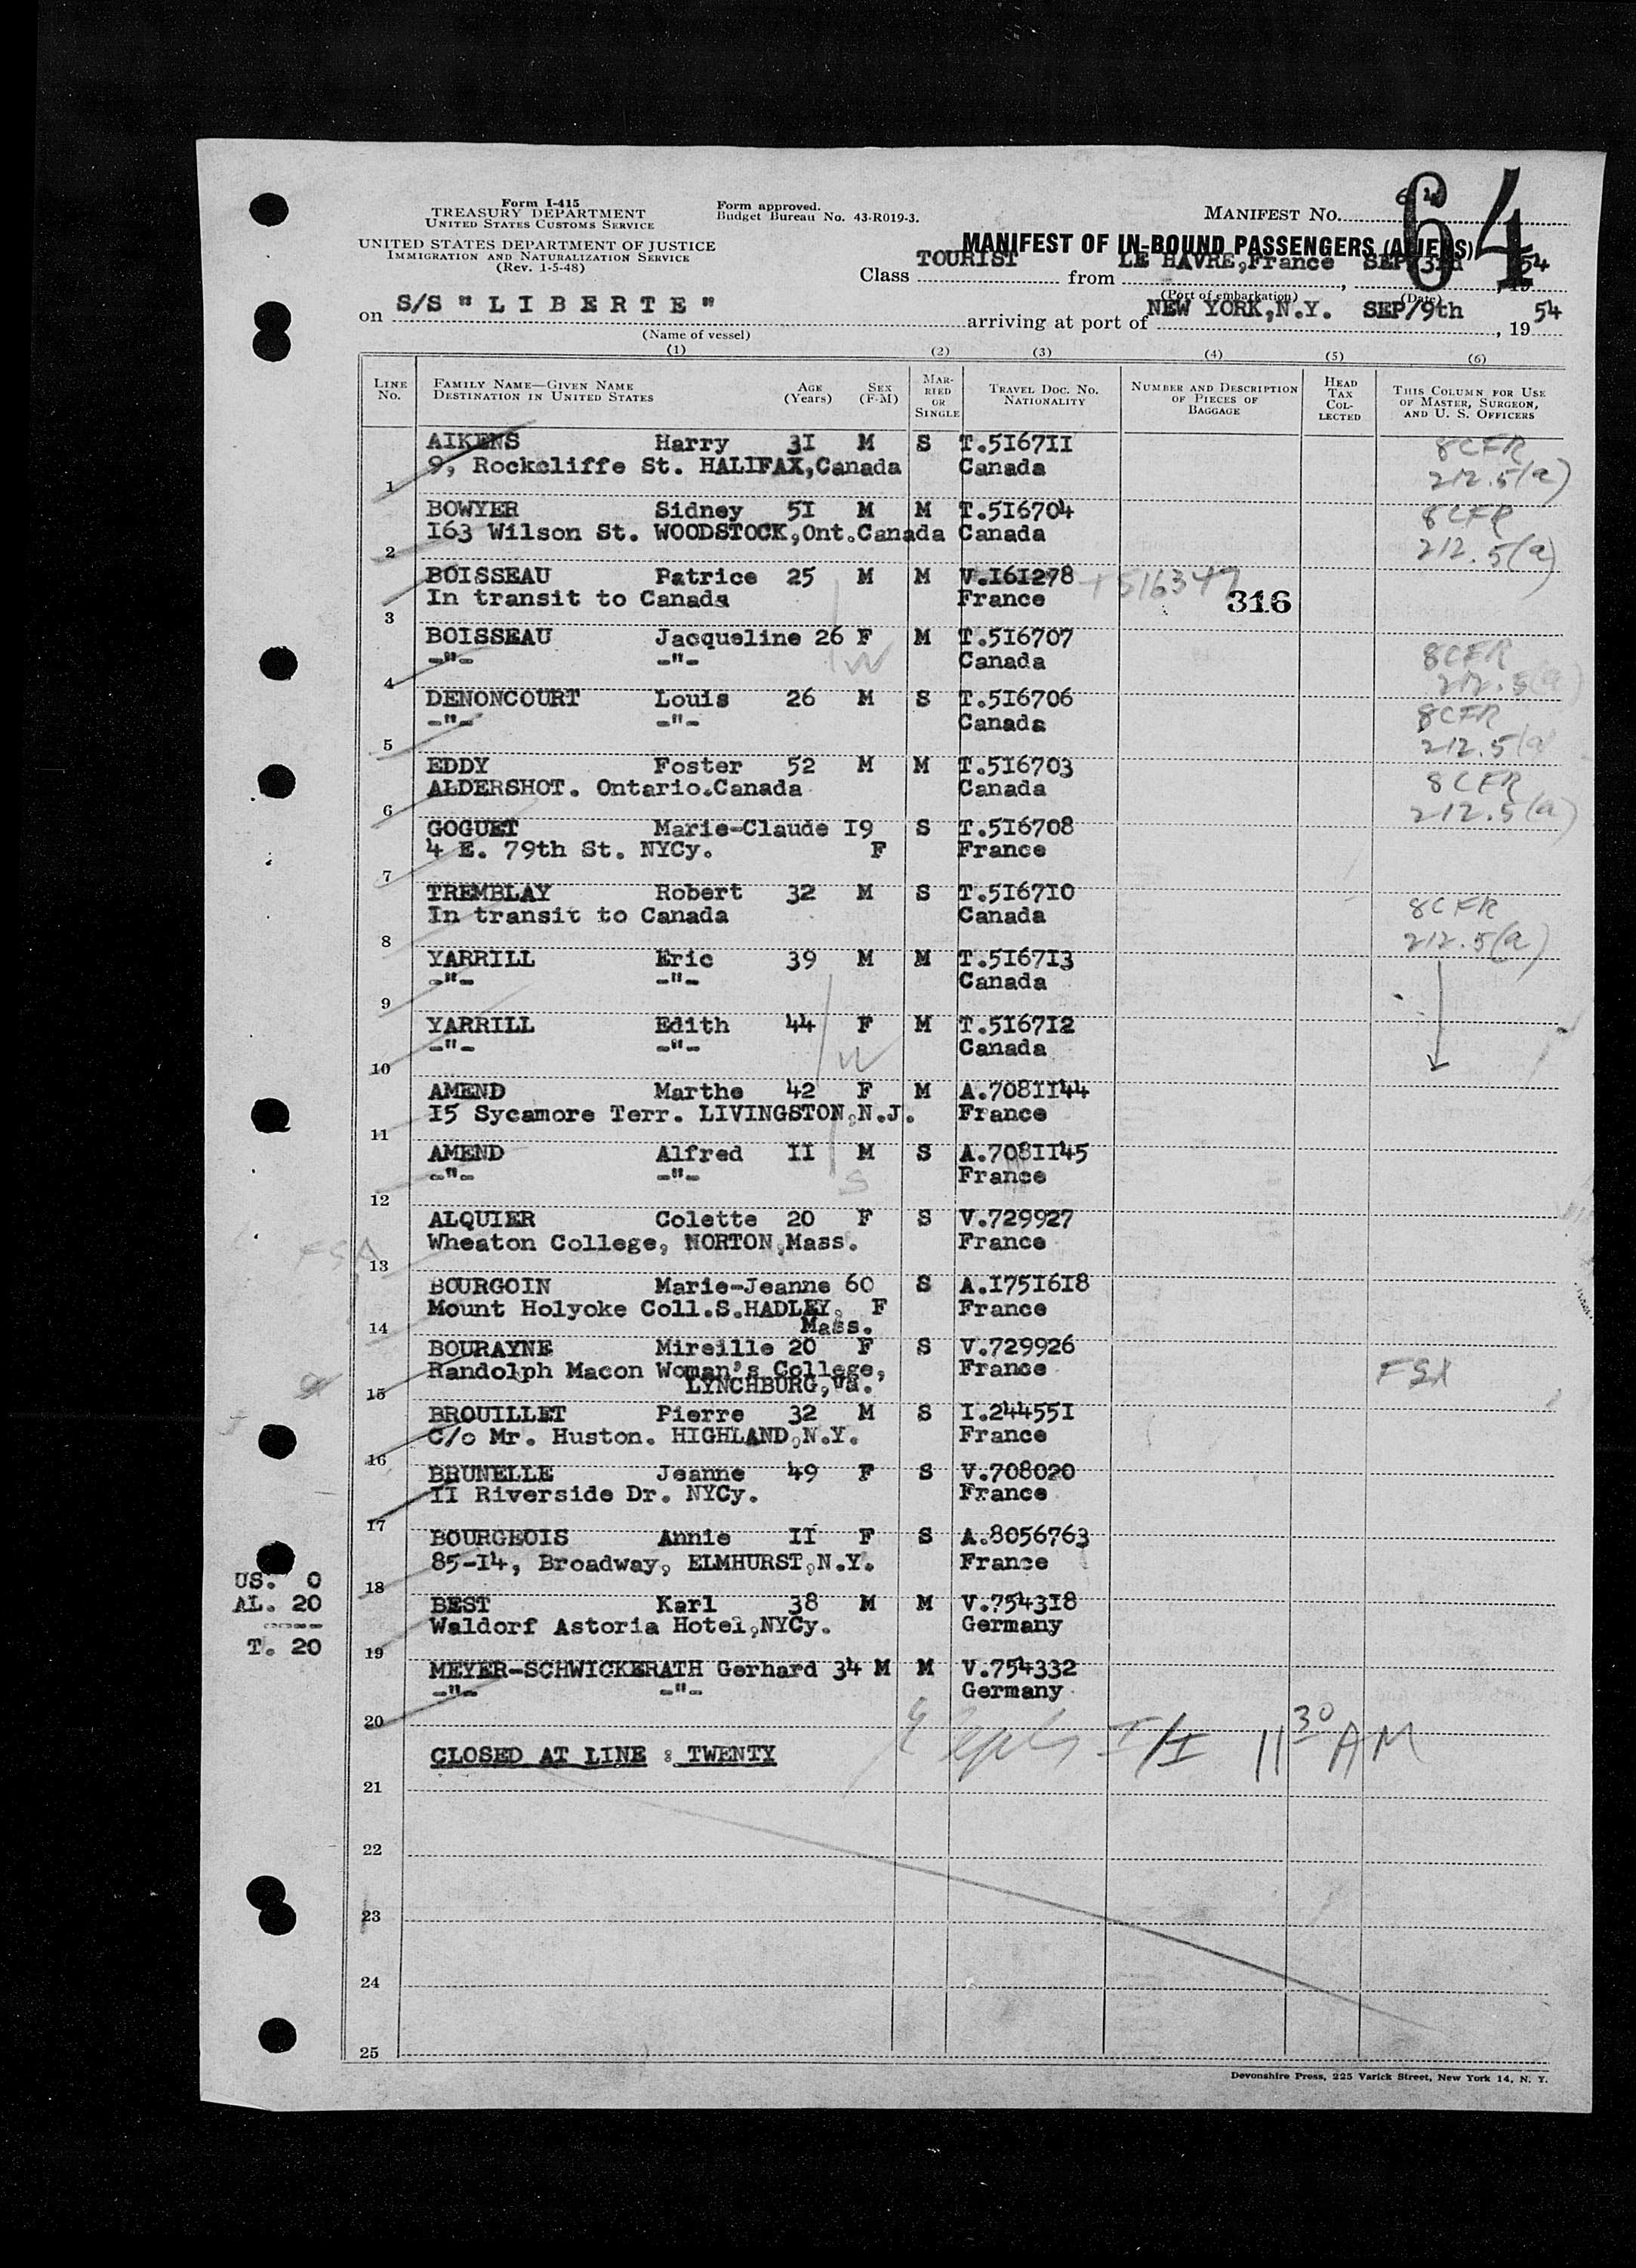 Form I-415
TREASURY DEPARTMENT
UNITED STATES CUSTOMS SERVICE
UNITED STATES DEPARTMENT OF JUSTICE
IMMIGRATION AND NATURALIZATION SERVICE
(Rev. 1-5-48)
Form approved.
Budget Bureau No. 43-R019-3.
MANIFEST NO. 64
64
MANIFEST OF IN-BOUND PASSENGERS (ALIENS)
Class TOURIST from LE HAVRE,France SEP/3rd, 1954
(Port of embarkation) (Date)
on S/S "LIBERTE" arriving at port of NEW YORK,N.Y. SEP/9th, 1954
(Name of vessel)
(1) (2) (3) (4) (5) (6)
LINE No. FAMILY NAME—GIVEN NAME DESTINATION IN UNITED STATES AGE (Years) SEX (F-M) MARRIED OR SINGLE TRAVEL DOC. NO. NATIONALITY NUMBER AND DESCRIPTION OF PIECES OF BAGGAGE HEAD TAX COLLECTED THIS COLUMN FOR USE OF MASTER, SURGEON, AND U. S. OFFICERS
AIKENS Harry 3I M S T.5I67II 8CFR
9, Rockcliffe St. HALIFAX,Canada Canada 212.5(a)
1
BOWYER Sidney 5I M M T.5I6704 8CFR
I63 Wilson St. WOODSTOCK,Ont.Canada Canada 212.5(a)
2
BOISSEAU Patrice 25 M M V.I6I278 T516347
In transit to Canada France 316
3
BOISSEAU Jacqueline 26 F M T.5I6707 8CFR
-"- -"- W Canada 212.5(a)
4
DENONCOURT Louis 26 M S T.5I6706 8CFR
-"- -"- Canada 212.5(a)
5
EDDY Foster 52 M M T.5I6703 8CFR
ALDERSHOT. Ontario.Canada Canada 212.5(a)
6
GOGUET Marie-Claude I9 S T.5I6708
4 E. 79th St. NYCy. F France
7
TREMBLAY Robert 32 M S T.5I67I0 8CFR
In transit to Canada Canada 212.5(a)
8
YARRILL Eric 39 M M T.5I67I3
-"- -"- Canada
9
YARRILL Edith 44 F M T.5I67I2
-"- -"- W Canada
10
AMEND Marthe 42 F M A.708II44
I5 Sycamore Terr. LIVINGSTON,N.J. France
11
AMEND Alfred II M S A.708II45
-"- -"- S France
12
ALQUIER Colette 20 F S V.729927
Wheaton College, NORTON,Mass. France
13
BOURGOIN Marie-Jeanne 60 S A.I75I6I8
Mount Holyoke Coll.S.HADLEY, F France
Mass.
14
BOURAYNE Mireille 20 F S V.729926
Randolph Macon Woman's College, France
LYNCHBURG,Va.
15
BROUILLET Pierre 32 M S I.24455I
C/o Mr. Huston. HIGHLAND,N.Y. France
16
BRUNELLE Jeanne 49 F S V.708020
II Riverside Dr. NYCy. France
17
BOURGEOIS Annie II F S A.8056763
85-I4, Broadway, ELMHURST,N.Y. France
18
US. 0
AL. 20
----
T. 20
BEST Karl 38 M M V.7543I8
Waldorf Astoria Hotel,NYCy. Germany
19
MEYER-SCHWICKERATH Gerhard 34 M M V.754332
-"- -"- Germany
20
I/I 11 30 AM
CLOSED AT LINE : TWENTY
21
22
23
24
25
Devonshire Press, 225 Varick Street, New York 14, N. Y.